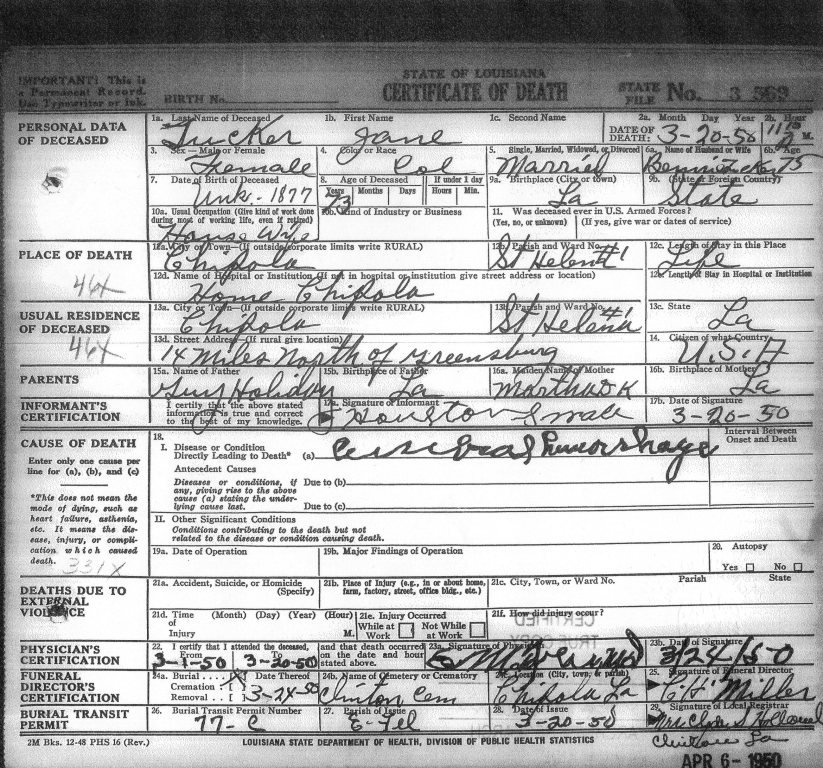 IMPORTANT! This is a Permanent Record. Use Typewriter or Ink.
BIRTH No.
STATE OF LOUISIANA
CERTIFICATE OF DEATH
STATE FILE No. 3 569
PERSONAL DATA OF DECEASED
1a. Last Name of Deceased Tucker
1b. First Name Jane
1c. Second Name
2a. Month Day Year
DATE OF DEATH: 3-20-50
2b. Hour M.
3. Sex—Male or Female Female
4. Color or Race Col
5. Single, Married, Widowed, or Divorced Married
6a. Name of Husband or Wife
6b. Age 75
7. Date of Birth of Deceased Unk. - 1877
8. Age of Deceased If under 1 day
Years Months Days Hours Min.
73
9a. Birthplace (City or town) La
9b. (State or Foreign Country) State
10a. Usual Occupation (Give kind of work done during most of working life, even if retired) House Wife
10b. Kind of Industry or Business
11. Was deceased ever in U.S. Armed Forces?
(Yes, no, or unknown) (If yes, give war or dates of service)
PLACE OF DEATH
464
12a. City or Town—(If outside corporate limits write RURAL) Chipola
12b. Parish and Ward No. St Helena #1
12c. Length of Stay in this Place Life
12d. Name of Hospital or Institution (If not in hospital or institution give street address or location) Home Chipola
12e. Length of Stay in Hospital or Institution
USUAL RESIDENCE OF DECEASED
464
13a. City or Town—(If outside corporate limits write RURAL) Chipola
13b. Parish and Ward No. St Helena #1
13c. State La
13d. Street Address—(If rural give location) 14 Miles North of Greensburg
14. Citizen of what Country U.S.A
PARENTS
15a. Name of Father Guy Holiday
15b. Birthplace of Father La
16a. Maiden Name of Mother Martha DK
16b. Birthplace of Mother La
INFORMANT'S CERTIFICATION
I certify that the above stated information is true and correct to the best of my knowledge.
17a. Signature of Informant Houston
17b. Date of Signature 3-20-50
CAUSE OF DEATH
Enter only one cause per line for (a), (b), and (c)
*This does not mean the mode of dying, such as heart failure, asthenia, etc. It means the disease, injury, or complication which caused death.
331X
18.
Interval Between Onset and Death
I. Disease or Condition Directly Leading to Death* (a) Cerebral Hemorrhage
Antecedent Causes
Diseases or conditions, if any, giving rise to the above cause (a) stating the underlying cause last.
Due to (b)
Due to (c)
II. Other Significant Conditions
Conditions contributing to the death but not related to the disease or condition causing death.
19a. Date of Operation
19b. Major Findings of Operation
20. Autopsy
Yes No
DEATHS DUE TO EXTERNAL VIOLENCE
21a. Accident, Suicide, or Homicide (Specify)
21b. Place of Injury (e.g., in or about home, farm, factory, street, office bldg., etc.)
21c. City, Town, or Ward No. Parish State
21d. Time of Injury (Month) (Day) (Year) (Hour) M.
21e. Injury Occurred
While at Work Not While at Work
21f. How did injury occur?
CERTIFIED
TRUE COPY
PHYSICIAN'S CERTIFICATION
22. I certify that I attended the deceased,
From To
3-1-50 3-20-50
and that death occurred on the date and hour stated above.
23a. Signature of Physician
23b. Date of Signature 3/24/50
FUNERAL DIRECTOR'S CERTIFICATION
24a. Burial X
Cremation
Removal
Date Thereof 3-24-50
24b. Name of Cemetery or Crematory Clinton Cem
24c. Location (City, town, or parish) Chipola La
25. Signature of Funeral Director Miller
BURIAL TRANSIT PERMIT
26. Burial Transit Permit Number 77-C
27. Parish of Issue E-Fel
28. Date of Issue 3-20-50
29. Signature of Local Registrar
Clinton La
2M Bks. 12-48 PHS 16 (Rev.)
LOUISIANA STATE DEPARTMENT OF HEALTH, DIVISION OF PUBLIC HEALTH STATISTICS
APR 6- 1950